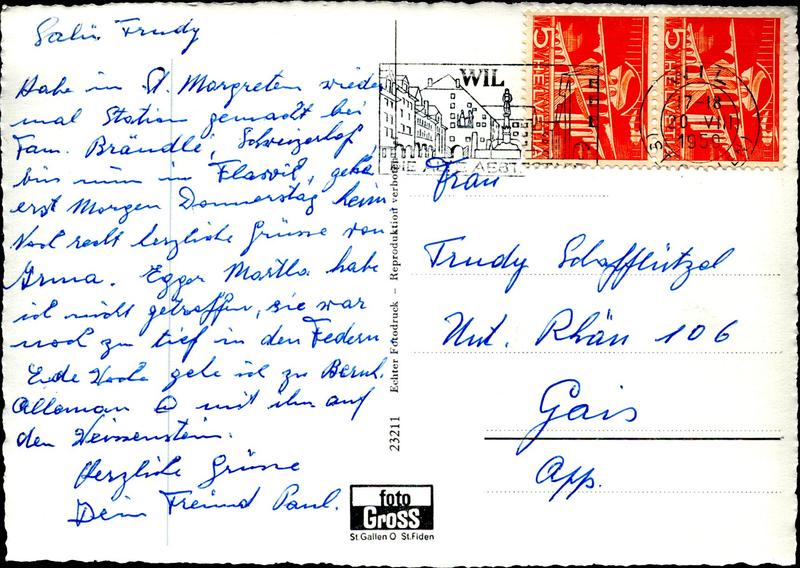 Salü Trudy
Habe in St. Margreten wieder
mal Station gemacht bei
Fam. Brändle, Schweizerhof,
bin nun in Flawil, gehe
erst Morgen Donnerstag heim
Noch recht herzliche Grüsse von
Irma. Egger Martha habe
ich nicht getroffen, sie war
noch zu tief in den Federn
Ende Woche gehe ich zu Bernh.
Alleman & mit ihm auf
den Weissenstein.
Herzliche Grüsse
Dein Freund Paul.
23211 Echter Fotodruck – Reproduktion verboten
foto
Gross
St. Gallen O St. Fiden
WIL
5 HELVETIA
5 HELVETIA
17-18
20. VIII
Frau
Trudy Schafflützel
Unt. Rhän 106
Gais
App.